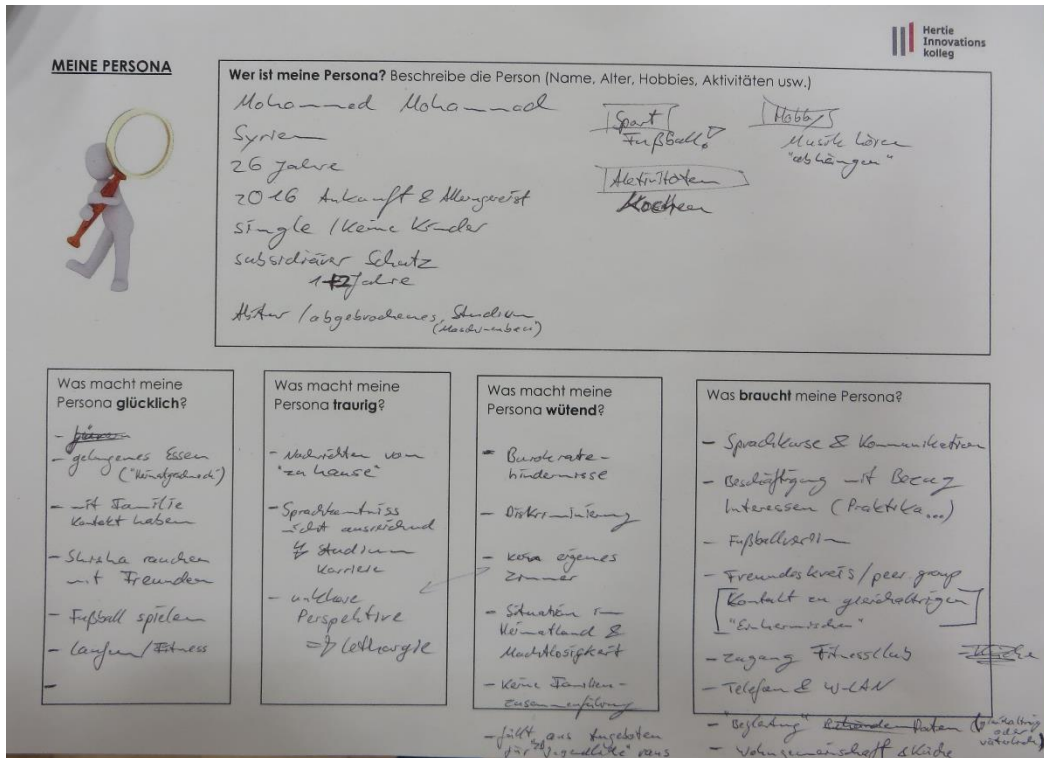 Hertie
Innovations
kolleg
MEINE PERSONA
Wer ist meine Persona? Beschreibe die Person (Name, Alter, Hobbies, Aktivitäten usw.)
Mohammed Mohammad
Syrien
26 Jahre
2016 Ankunft & Alleingereist
single / Keine Kinder
subsidiärer Schutz
Jahre
Abitur / abgebrochenes Studium
(Maschinenbau)
Sport
Fußball!
Aktivitäten
Kochen
Hobby
Musik hören
"abhängen"
Was macht meine
Persona glücklich?
- gelungenes Essen
("Heimatgeschmack")
- mit Familie
Kontakt haben
- Shisha rauchen
mit Freunden
- Fußball spielen
- Laufen / Fitness
-
Was macht meine
Persona traurig?
- Nachrichten von
"zu hause"
- Sprachkentniss
nicht ausreichend
Studium
Karriere
- unklare
Perspektive
=> Lethargie
Was macht meine
Persona wütend?
- Burokratie-
hindernisse
- Diskriminierung
- kein eigenes
Zimmer
- Situation im
Heimatland &
Machtlosigkeit
- Keine Familien-
zusammenführung
- fällt aus Angeboten
für "Jugendhilfe" raus
Was braucht meine Persona?
- Sprachkurse & Kommunikation
- Beschäftigung mit Bezug
Interessen (Praktika...)
- Fußballverein
- Freundeskreis / peer group
Kontakt zu gleichaltrigen
"Einheimischen"
- Zugang Fitnessclub
- Telefon & W-LAN
- "Begleitung" Paten (gleichaltrig
oder
väterlich)
- Wohngemeinschaft & Küche